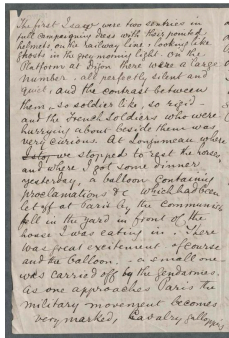 The first I saw were two sentries in
full campaigning dress with their pointed
helmets, on the railway line, looking like
ghosts in the grey morning light. On the
platform at Dijon there were a large
number, all perfectly silent and
quiet, and the contrast between
them, so soldier like, so rigid -
and the French soldiers who were
hurrying about beside them was
very curious. At Lonjumeau where
we stopped to rest the horses,
and where I got some dinner,
yesterday, a balloon containing
proclamations &c which had been
let off at Paris by the Communists
fell in the yard in front of the
house I was eating in. There
was great excitement of course
and the balloon - a small one
was carried off by the gendarmes.
As one approaches Paris the
military movement becomes
very marked, Cavalry galloping